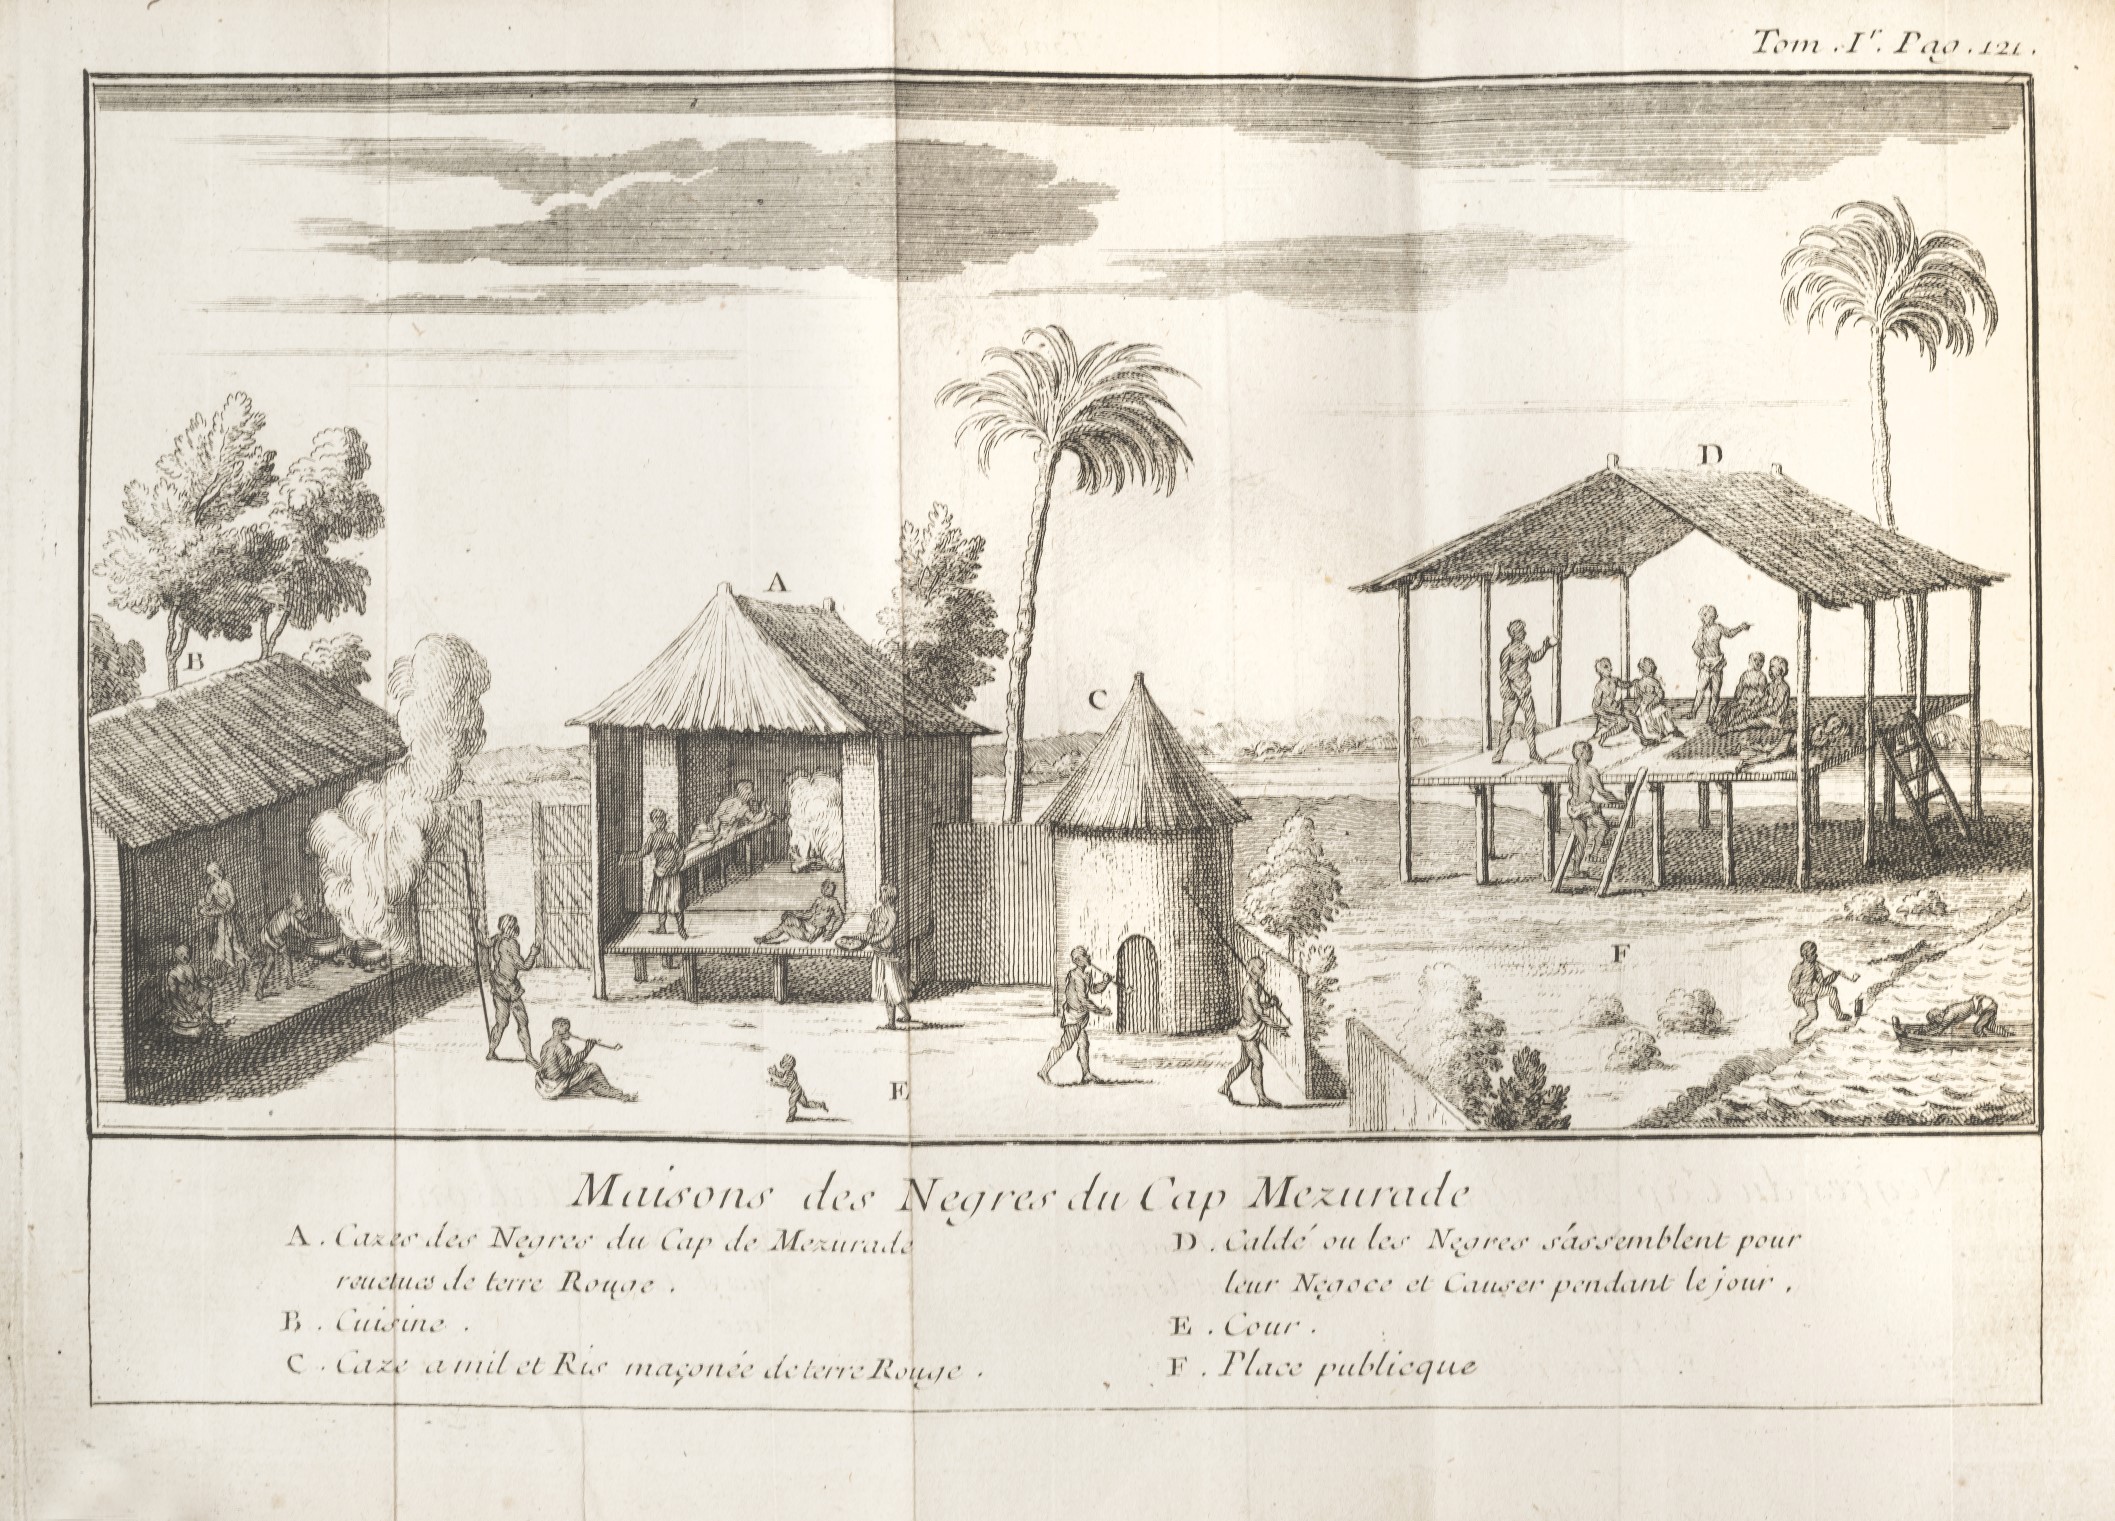 Tom. Iʳ. Pag. 121.
D
A
B
C
F
E
Maisons des Negres du Cap Mezurade
A. Cazes des Negres du Cap de Mezurade
reuetues de terre Rouge.
B. Cuisine.
C. Caze a mil et Ris maçonée de terre Rouge.
D. Caldé ou les Negres s'assemblent pour
leur Negoce et Causer pendant le jour.
E. Cour.
F. Place publicque